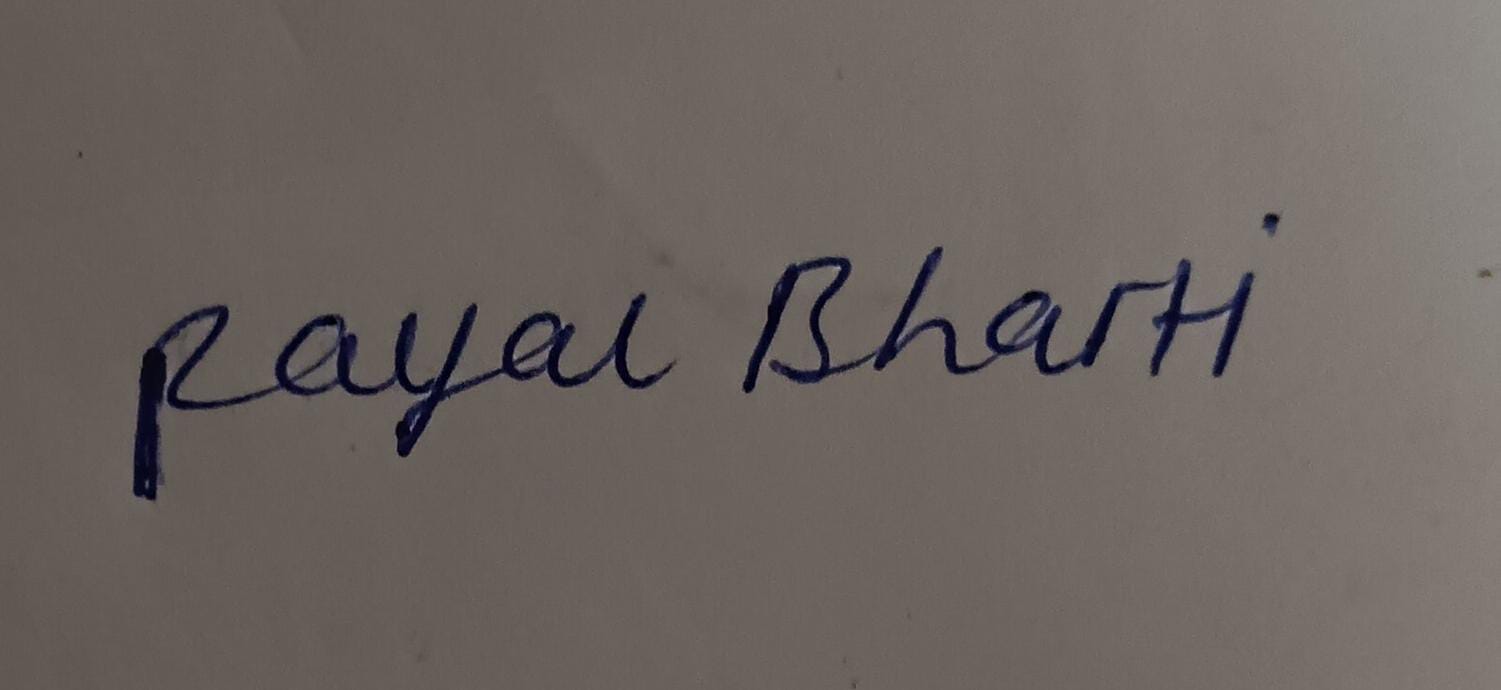 Payal Bharti